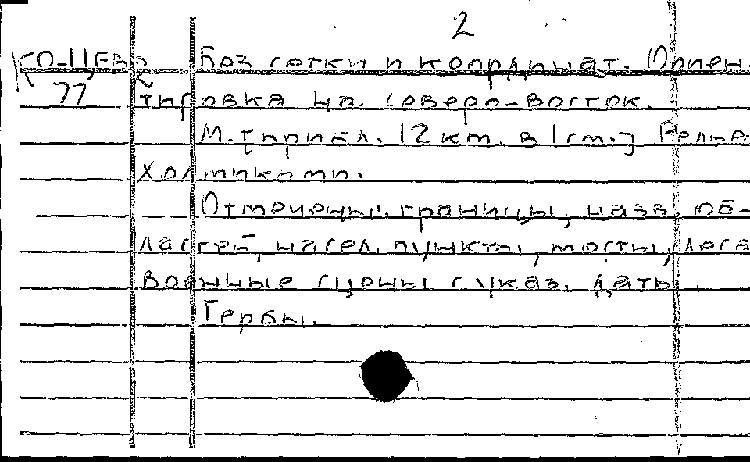 2
КО-11 Евр Без сетки и координат. Ориен-
77 тировка на северо-восток.
М. [прибл. (2 км. в 1 см.] Рельеф
холмиками.
Отмечены границы, назв. об-
ластей, насел. пункты, мосты, леса
Военные сцены с указ. даты.
Гербы.